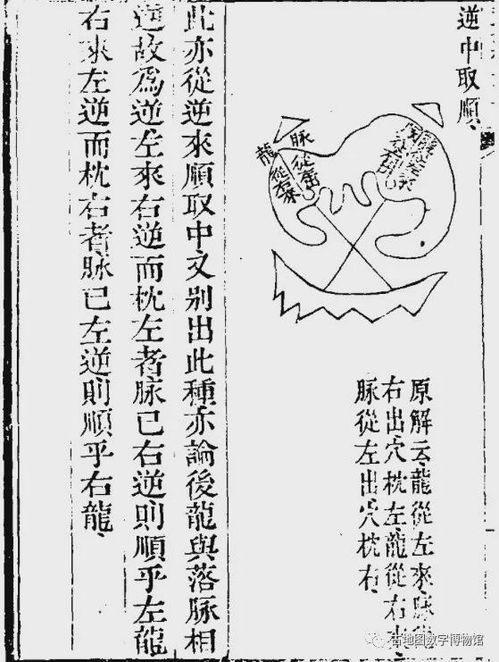 逆中取順、
脈從左出
龍從右來
原解云龍從左來脉從
右出穴枕左龍從右來
脈從左出穴枕右、
此亦從逆來順取中文别出此種亦論後龍與落脉相
逆故爲逆左來右逆而枕左者脉已右逆則順乎左龍
右來左逆而枕右者脉已左逆則順乎右龍、
古地图数字博物馆